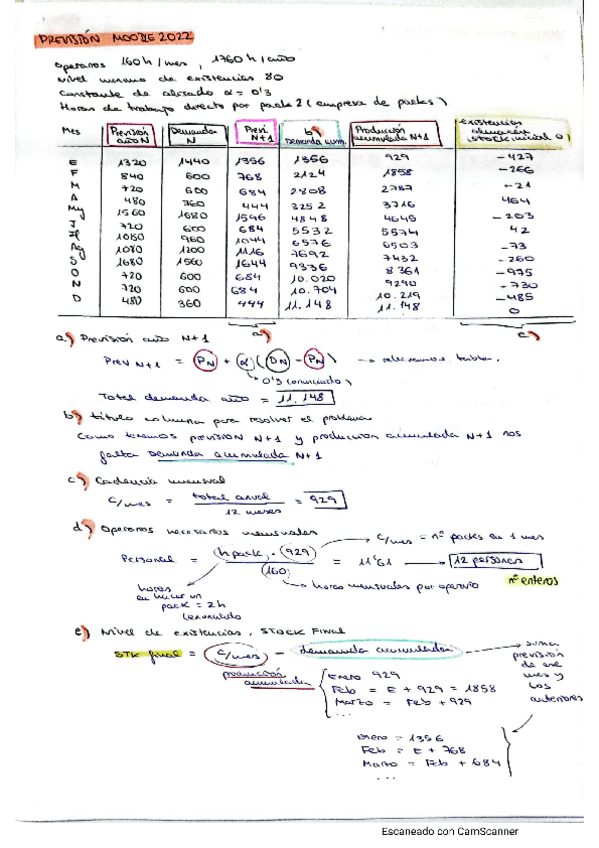 PREVISIÓN MOODLE 2022
Operarios 160h/mes, 1760h/año
Nivel mínimo de existencias 80
Constante de alisado α = 0'3
Horas de trabajo directo por pack 2 (empresa de packs)
Mes Previsión año N Demanda N Previ. N+1 b) Demanda acum. Producción acumulada N+1 existencias almacén (stock inicial 0)
E 1320 1440 1356 1356 929 -427
F 840 600 768 2124 1858 -266
M 720 600 684 2808 2787 -21
A 480 360 444 3252 3716 464
My 1560 1680 1596 4848 4645 -203
J 720 600 684 5532 5574 42
Jl 1080 960 1044 6576 6503 -73
Ag 1080 1200 1116 7692 7432 -260
S 1680 1560 1644 9336 8361 -975
O 720 600 684 10.020 9290 -730
N 720 600 684 10.704 10.219 -485
D 480 360 444 11.148 11.148 0
a) c)
a) Previsión año N+1
PREV N+1 = PN + α (DN - PN) → rellenamos tabla.
0'3 (enunciado)
Total demanda año = 11.148
b) título columna para resolver el problema
Como tenemos previsión N+1 y producción acumulada N+1 nos
falta Demanda acumulada N+1
c) Cadencia mensual
C/mes = total anual / 12 meses = 929
d) Operarios necesarios mensuales
C/mes = nº packs en 1 mes
Personal = (h pack · 929) / 160 = 11'61 → 12 personas
nº enteros
horas mensuales por operario
horas en hacer un pack = 2h (enunciado)
e) Nivel de existencias, STOCK FINAL
STK final = C/mes - demanda acumulada
producción acumulada
Enero 929
Feb = E + 929 = 1858
Marzo = Feb + 929
...
sumar previsión de ese mes y los anteriores
Enero = 1356
Feb = E + 768
Marzo = Feb + 684
...
Escaneado con CamScanner